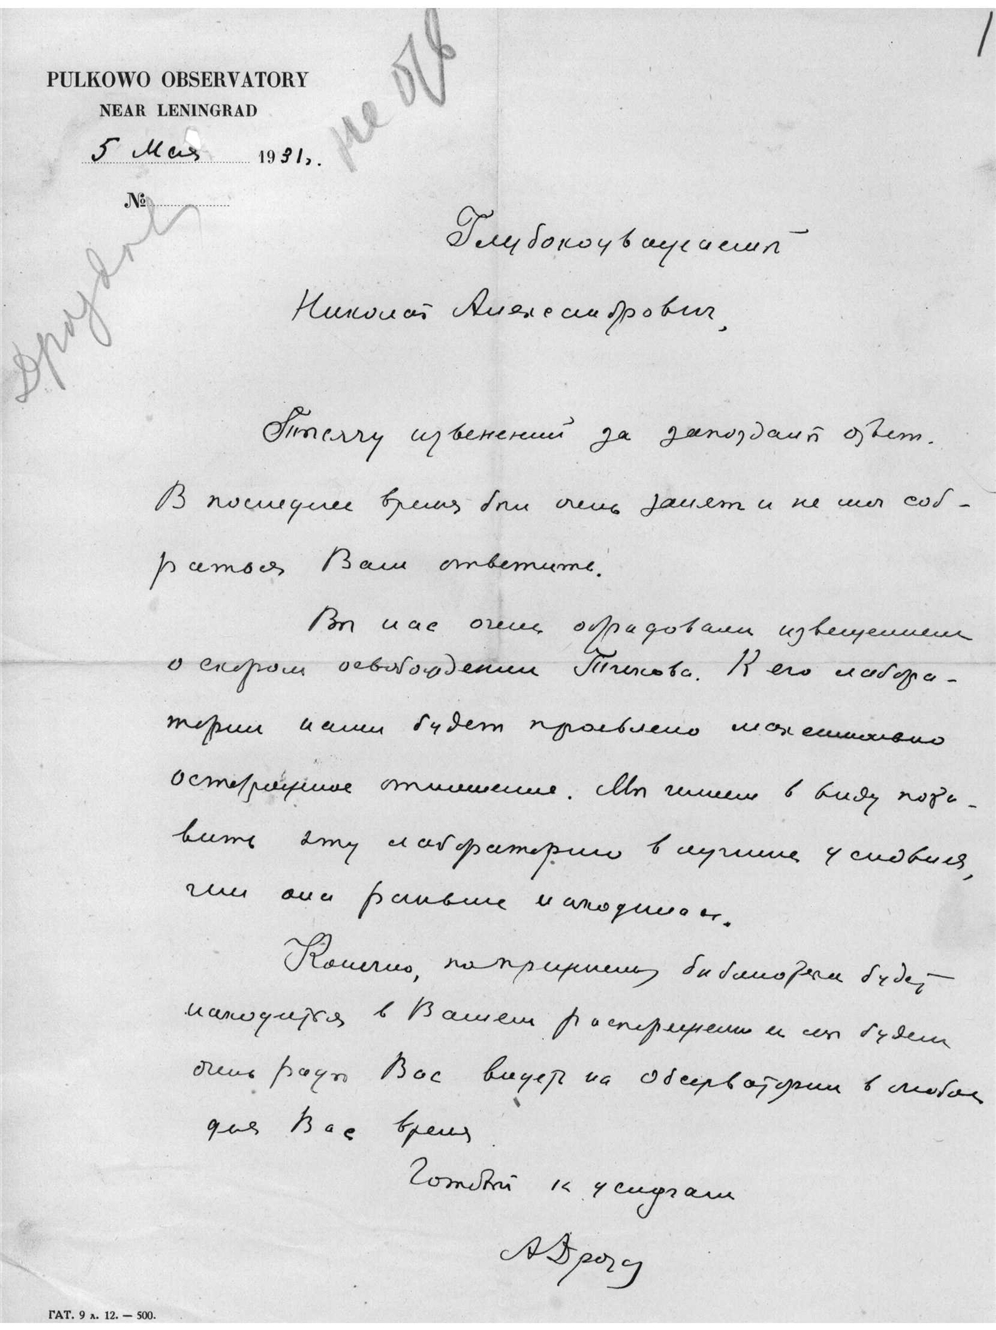 1
PULKOWO OBSERVATORY
NEAR LENINGRAD
5 Мая 1931 г.
№
не
Дроздов
Глубокоуважаемый
Николай Александрович,
Тысячу извенений за запоздалый ответ.
В последнее время был очень занят и не мог соб-
раться Вам ответить.
Вы нас очень обрадовали извещением
о скором освобождении Тихова. К его лабора-
тории нами будет проявлено максимально
осторожное отношение. Мы имеем в виду поста-
вить эту лабораторию в лучшие условия,
чем она раньше находилась.
Конечно, попрежнему библиотека будет
находится в Вашем распоряжении и мы будем
очень рады Вас видеть на Обсерватории в любое
для Вас время
Готовый к услугам
АДрозд
ГАТ. 9 л. 12. — 500.